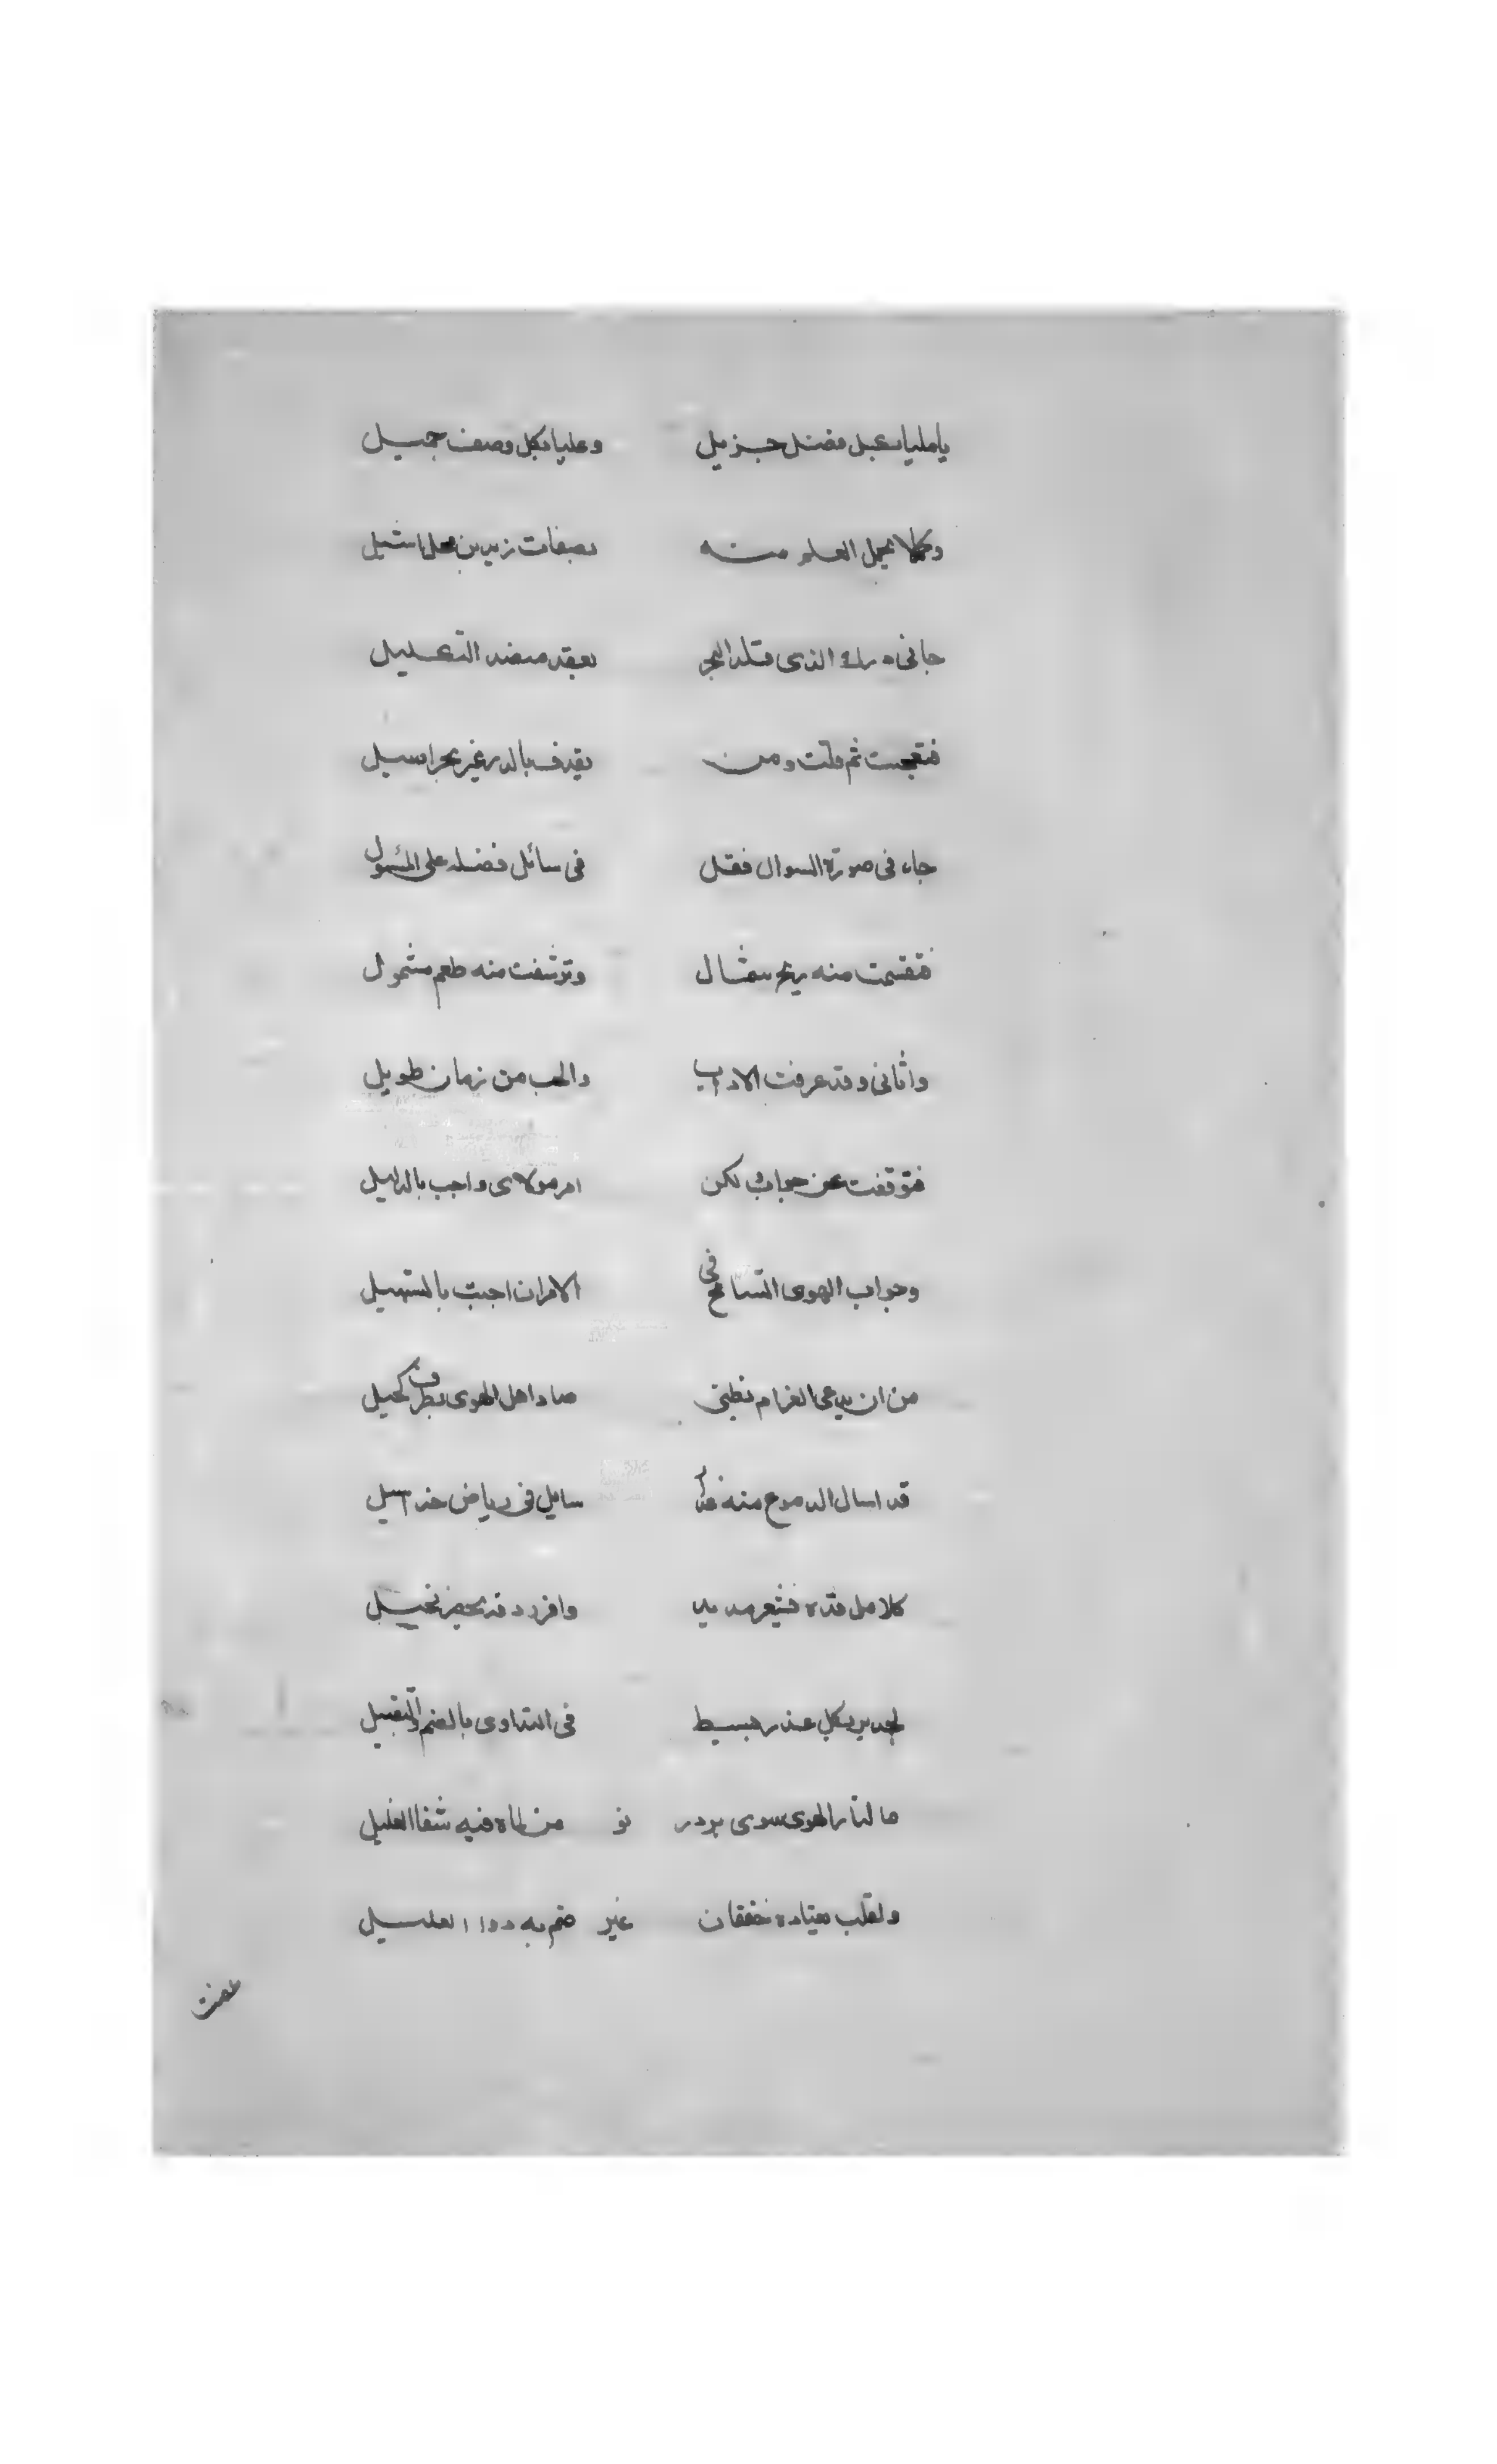 يا مليا بكل فضل جزيل وعليا بكل وصف جميل
وكمالا يجمل العلم منه بصفات زيدت
جانى درك الذى قلد بعقد منضد التعليل
فتعجبت ثم قلت ومن يقذف بالدر غير بحر اسيل
جاء فى صورة السوال فقل فى سائل فضله على المسئول
منه ريح شمال وترشفت منه طعم شمول
واتانى وقد عرفت الاداب والحب من زمان طويل
فتوقفت عن جواب ولكن امر مولاى واجب بالدليل
وجواب الهوى التسامح فى الامر ان اجبت بالتسهيل
من ان يدعى الغرام بظبى صاد اهل الهوى بطرف كحيل
قد اسال الدموع منه سايل فى رياض خد اسيل
كامل قده فشعر مديد وافر ردفه بخصر نحيل
لجدير بكل عذر بسيط فى التداوى بالضم والتقبيل
ما لنار الهوى سوى برد ر نو من لماه فيه شفا الغليل
ولقلب يعتاده خفقان غير ضم به دوا العليل